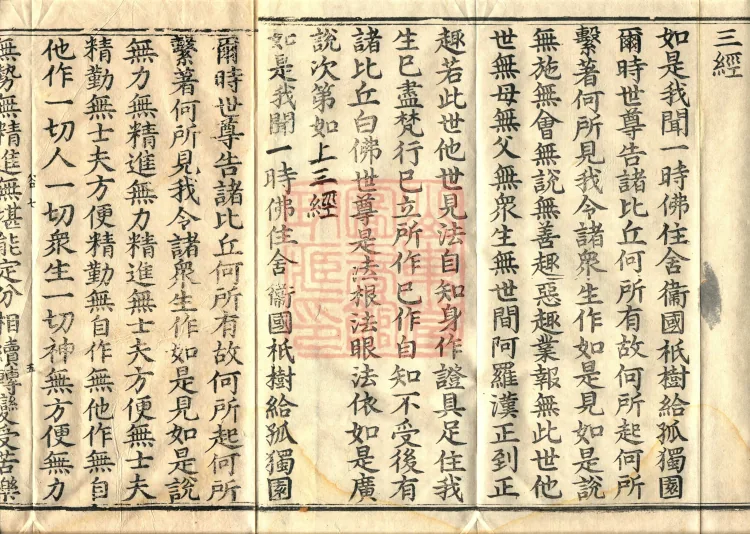 三經
如是我聞一時佛住舍衞國祇樹給孤獨園
爾時世尊告諸比丘何所有故何所起何所
繫著何所見我令諸衆生作如是見如是說
無施無會無說無善趣惡趣業報無此世他
世無母無父無衆生無世間阿羅漢正到正
趣若此世他世見法自知身作證具足住我
生已盡梵行已立所作已作自知不受後有
諸比丘白佛世尊是法根法眼法依如是廣
說次第如上三經
如是我聞一時佛住舍衞國祇樹給孤獨園
爾時世尊告諸比丘何所有故何所起何所
繫著何所見我令諸衆生作如是見如是說
無力無精進無力精進無士夫方便無士夫
精勤無士夫方便精勤無自作無他作無自
他作一切人一切衆生一切神無方便無力
七 五
無勢無精進無堪能定分相續轉變受苦樂